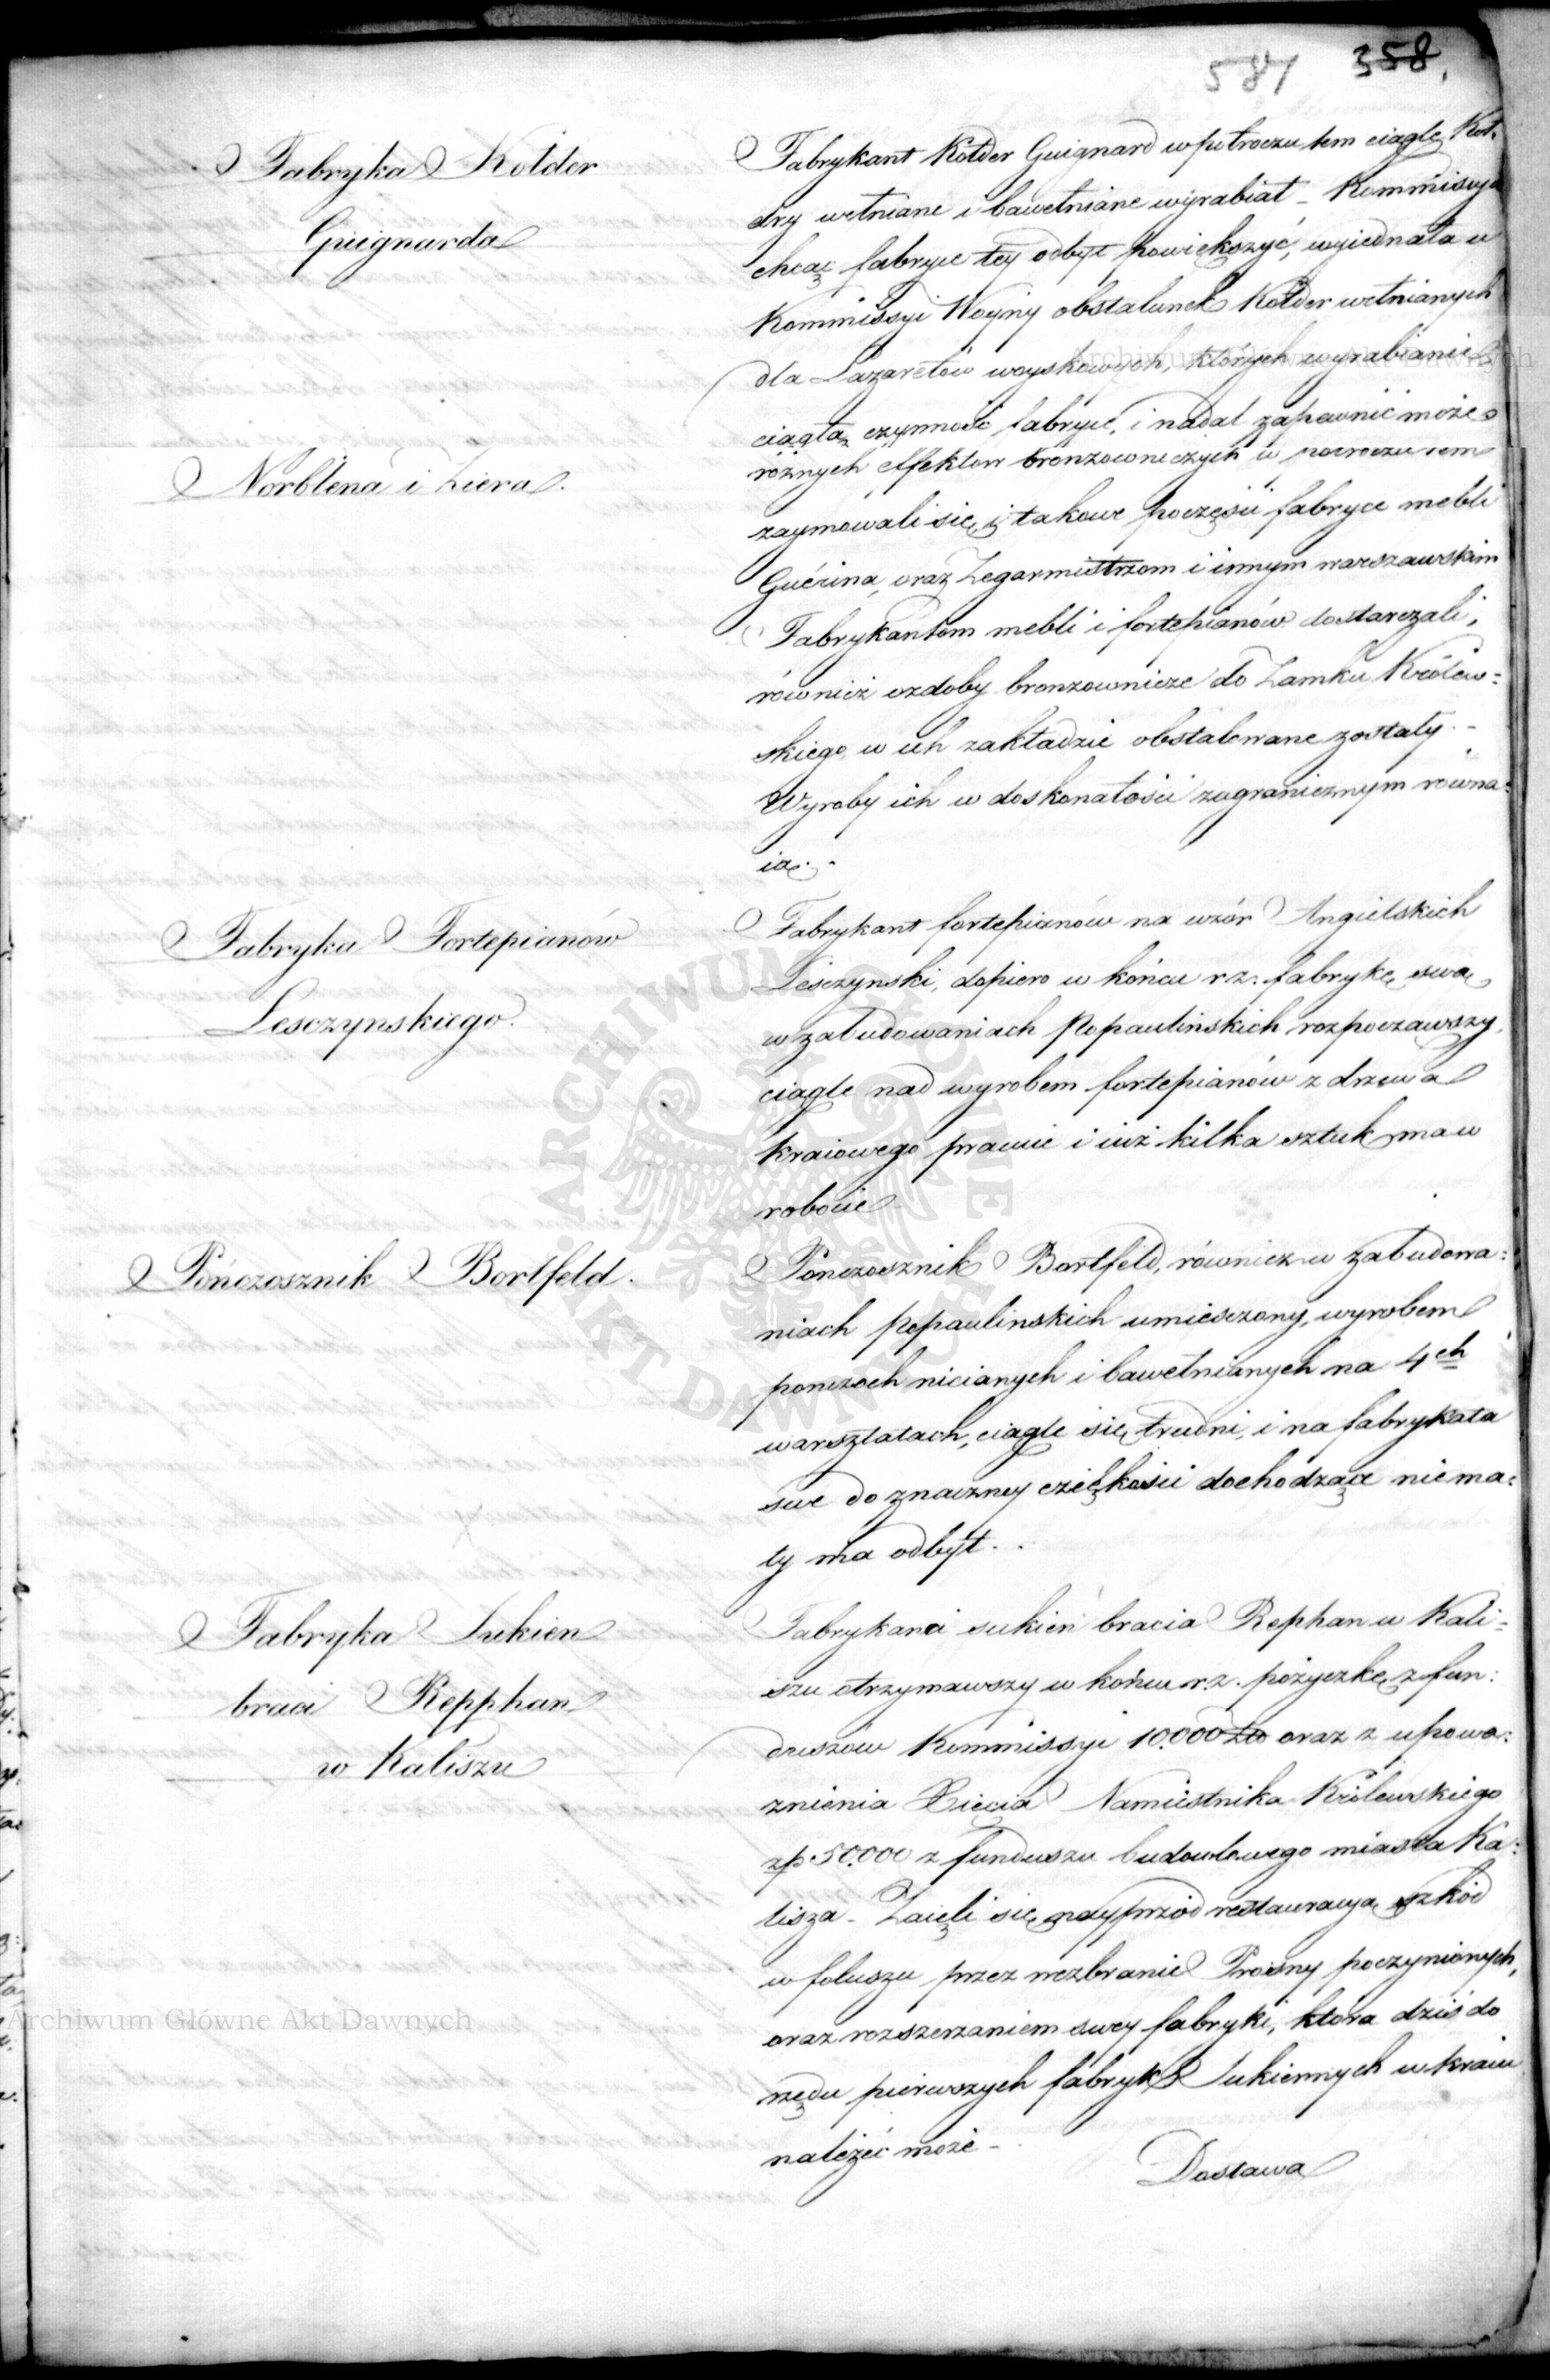 581 358.
Fabryka Kołder
Guignarda
Fabrykant Kołder Guignard w półroczu tem ciągle Koł-
dry wełniane i bawełniane wyrabiał _ Kommissya
chcąc fabryce tey odbyt powiększyć, wyiednała u
Kommissyi Woyny obstalunek Kołder wełnianych
dla Lazaretów woyskowych, których wyrabianie
ciągłą czynność fabryce, i nadal zapewnić może
Norblena i Ziera.
różnych effektow bronzowniczych w półroczu tem
zaymowali się, i takowe poczęści fabryce mebli
Guérina, oraz Zegarmistrzom i innym warszawskim
Fabrykantom mebli i fortepianów dostarczali,
również ozdoby bronzownicze do Zamku Królew=
skiego w ich zakładzie obstalowane zostały. _
Wyroby ich w doskonałości zagranicznym równa=
ią. -
Fabryka Fortepianów
Lesczynskiego.
Fabrykant fortepianów na wzór Angielskich
Lesczynski, dopiero w końcu r z. fabrykę swą
w zabudowaniach Popaulińskich rozpocząwszy,
ciągle nad wyrobem fortepianów z drzewa
kraiowego pracuie i iuż kilka sztuk ma w
robocie
Pończosznik Bortfeld.
Pończosznik Bortfeld, również w zabudowa=
niach popaulinskich umiesczony, wyrobem
ponczoch nicianych i bawełnianych na 4ch
warsztatach, ciągle się trudni, i na fabrykata
swe do znaczney cieńkości dochodzące niema=
ły ma odbyt. .
Fabryka Sukien
braci Repphan
w Kaliszu
Fabrykanci sukien bracia Rephan w Kali=
szu otrzymawszy w końcu r.z. pożyczkę z fun=
duszów Kommissyi 10.000 zł oraz z upowa=
żnienia Xięcia Namiestnika Królewskiego
zp. 50.000 z funduszu budowlowego miasta Ka=
lisza _ Zaięli się nayprzód restauracyą szkód
w foluszu przez wezbranie Prosny poczynionych,
oraz rozszerzaniem swey fabryki, ktora dziś do
rzędu pierwszych fabryk Sukiennych w kraiu
należeć może _
Dostawa
Archiwum Główne Akt Dawnych
Archiwum Główne Akt Dawnych
ARCHIWUM GŁÓWNE AKT DAWNYCH